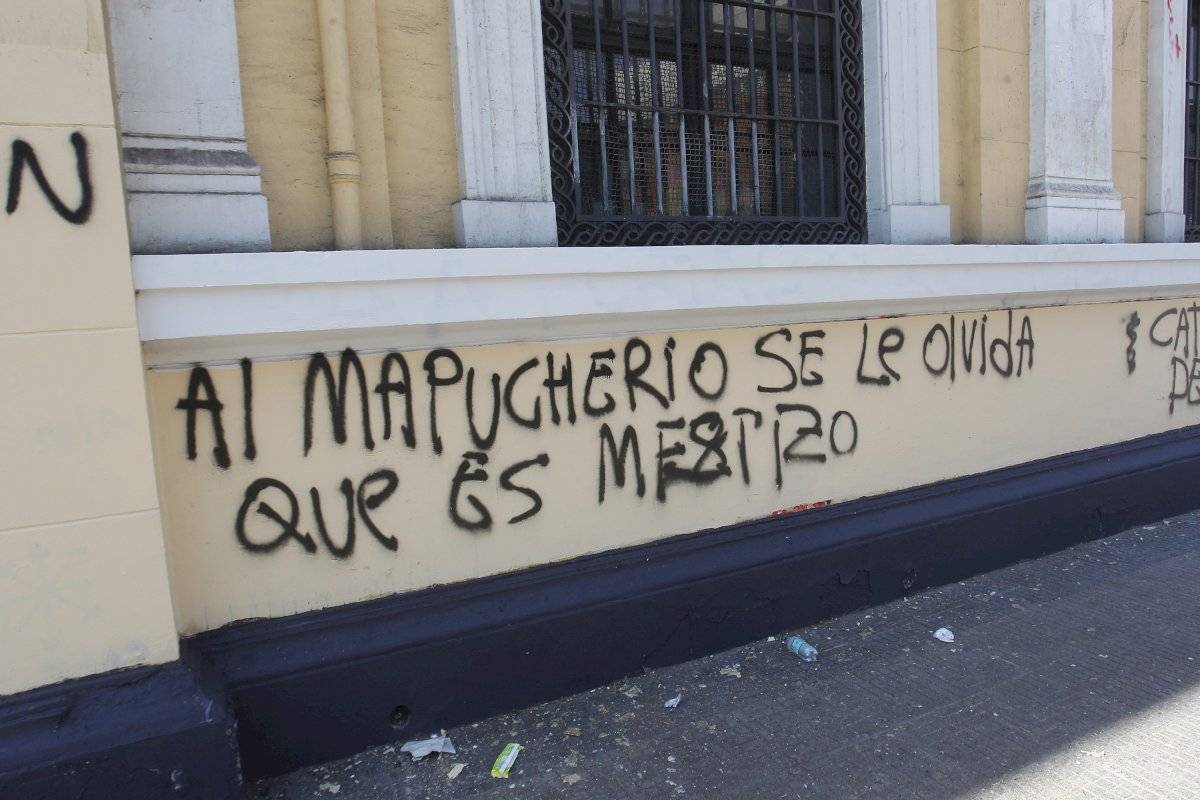 N
Al MAPUCHERiO SE Le OlVidA
QUe ES MESTIZO
CAT
PE